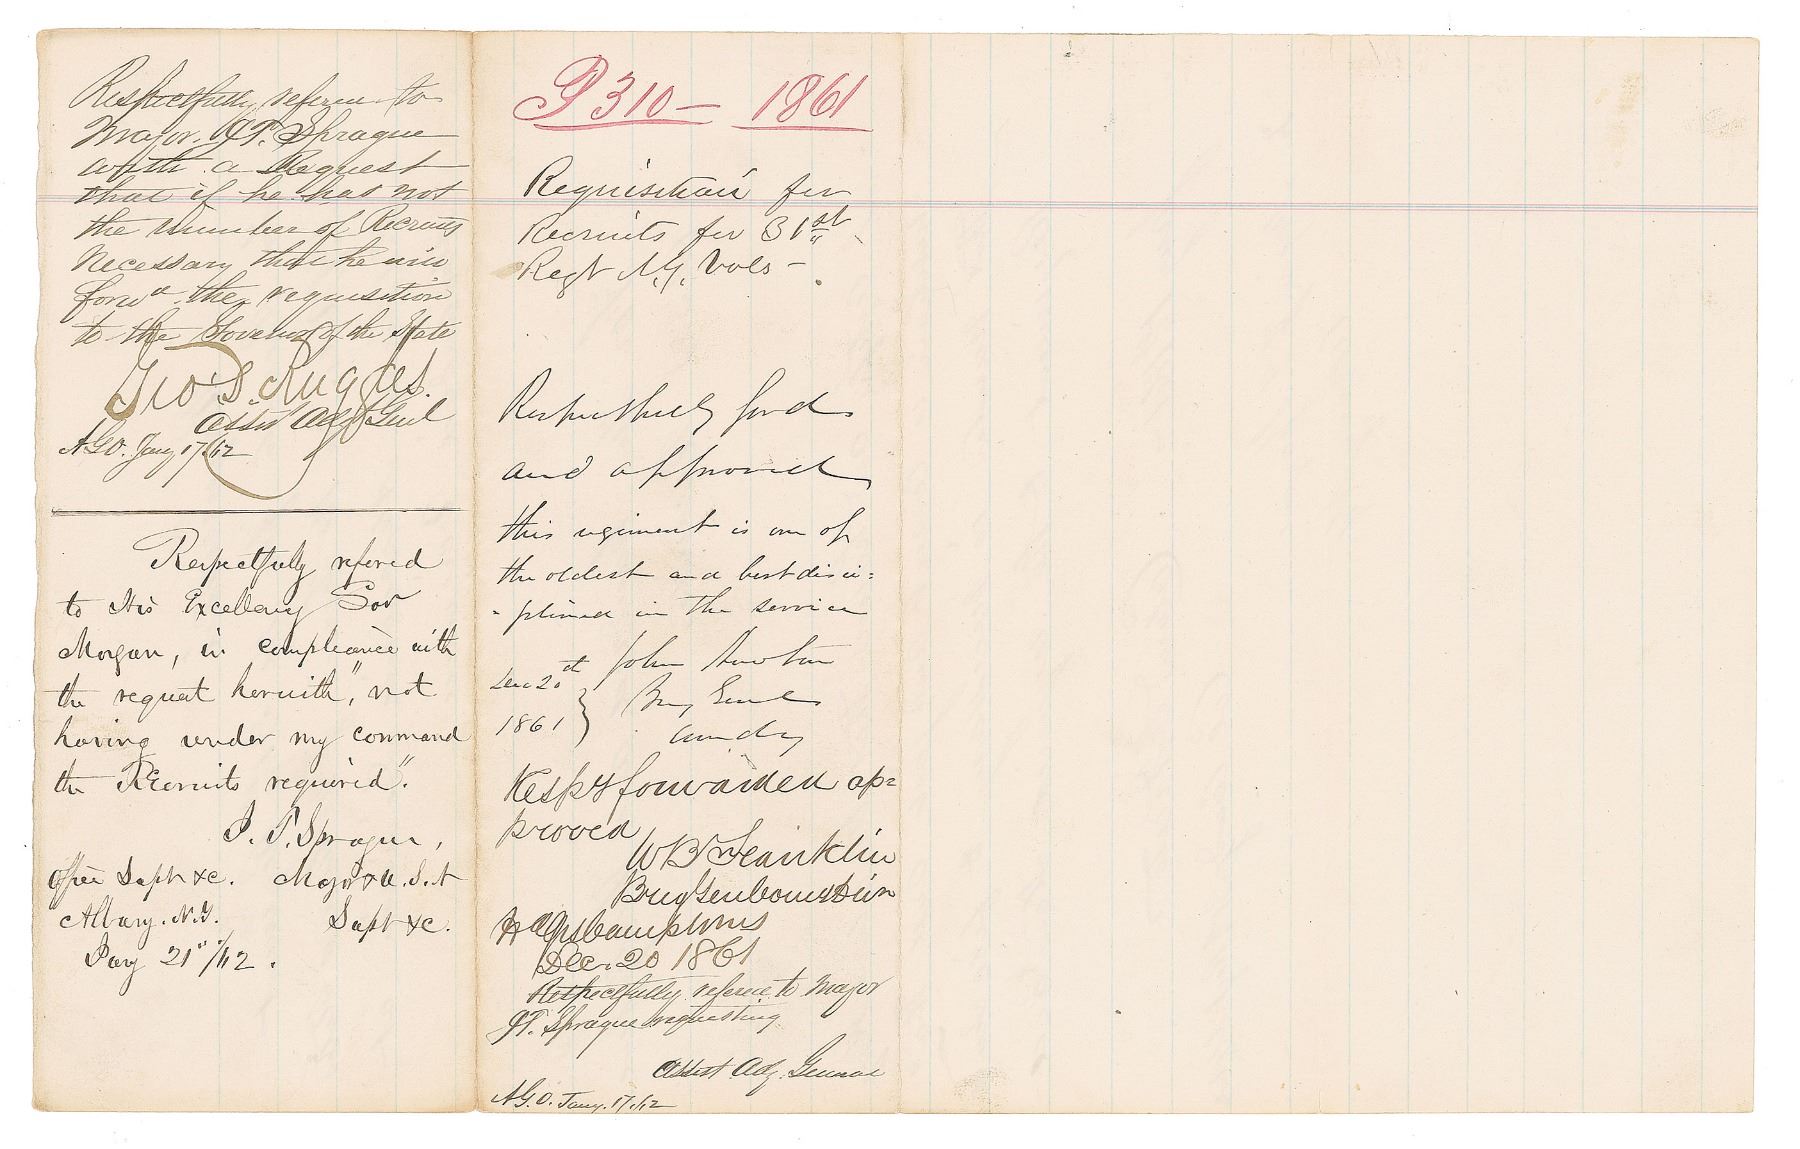 Respectfully referred to
Major J T. Sprague
with a Request
that if he has not
the number of Recruits
Necessary that he will
forwd the requisition
to the Governor of the State
Geo D. Ruggles.
Assist Adjt Genl
A.G.O. Jany 17/62
Respectfully refered
to His Excellency Gov
Morgan, in compliance with
the request herewith, "not
having under my command
the Recruits required".
J. T. Sprague,
Office Supt &c. Major U.S.A
Albany. N.Y. Supt &c.
Jany 21"/62.
P 310 - 1861
Requisition for
Recruits for 31st
Regt N.Y. Vols -
Respectfully ford
and approved
this regiment is one of
the oldest and best disci=
-plined in the service
Dec 20th John Newton
1861 } Brig Genl
Comdg
Respy forwarded ap=
proved
W B Franklin
Brig Gen Comdg Divn
Hd Qrs Camp Wms
Dec. 20 1861
Respectfully referred to Major
J T. Sprague requesting
Assist Adj. General
A.G.O. Jany. 17/62